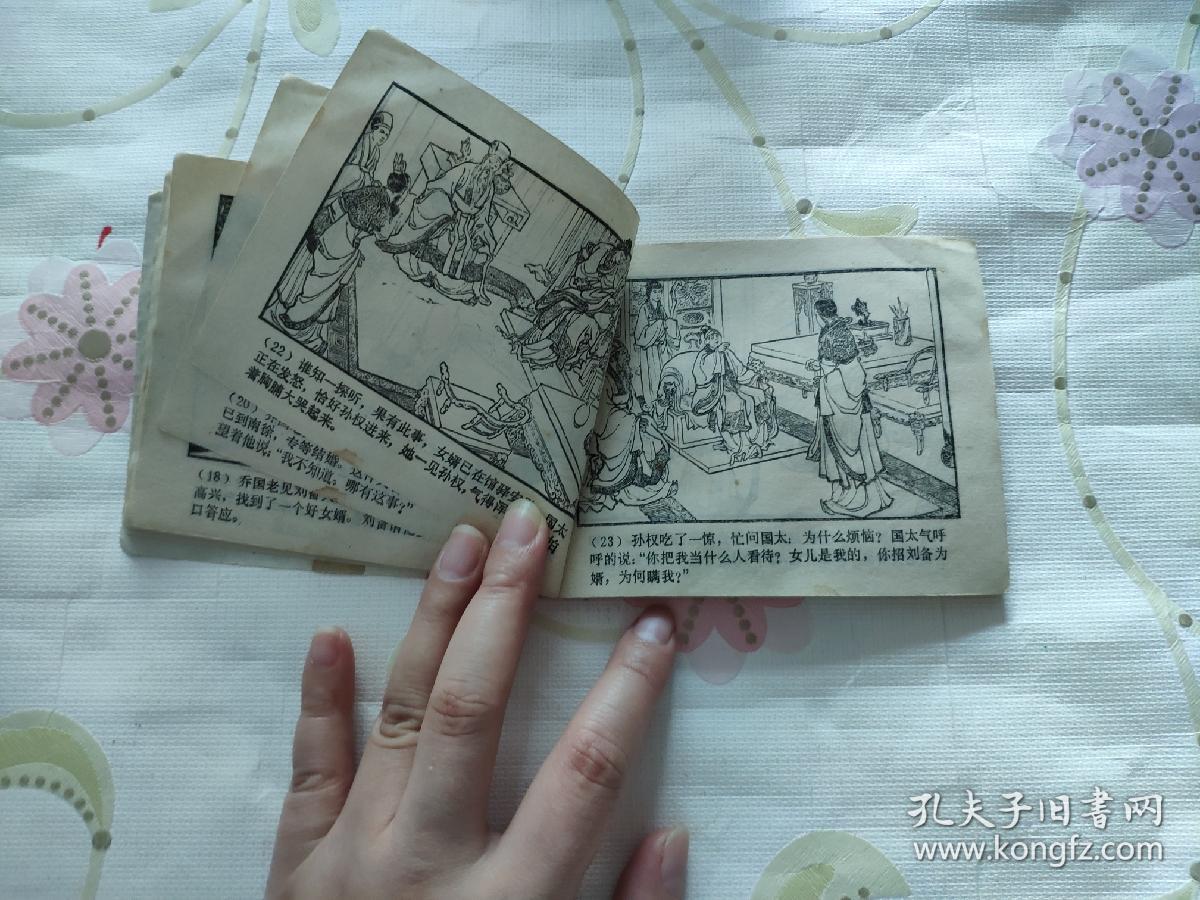 (22) 谁知一探听，果有此事，女婿已在馆驿安
正在发怒，恰好孙权进来，她一见孙权，气得深
着胸脯大哭起来。
国太
拍
(20)
已到南徐，专等结婚。
望着他说："我不知道，哪有这事？"
(18) 乔国老见刘备
高兴，找到了一个好女婿。刘备
口答应。
(23) 孙权吃了一惊，忙问国太：为什么烦恼？国太气呼
呼的说："你把我当什么人看待？女儿是我的，你招刘备为
婿，为何瞒我？"
孔夫子旧書网
www.kongfz.com